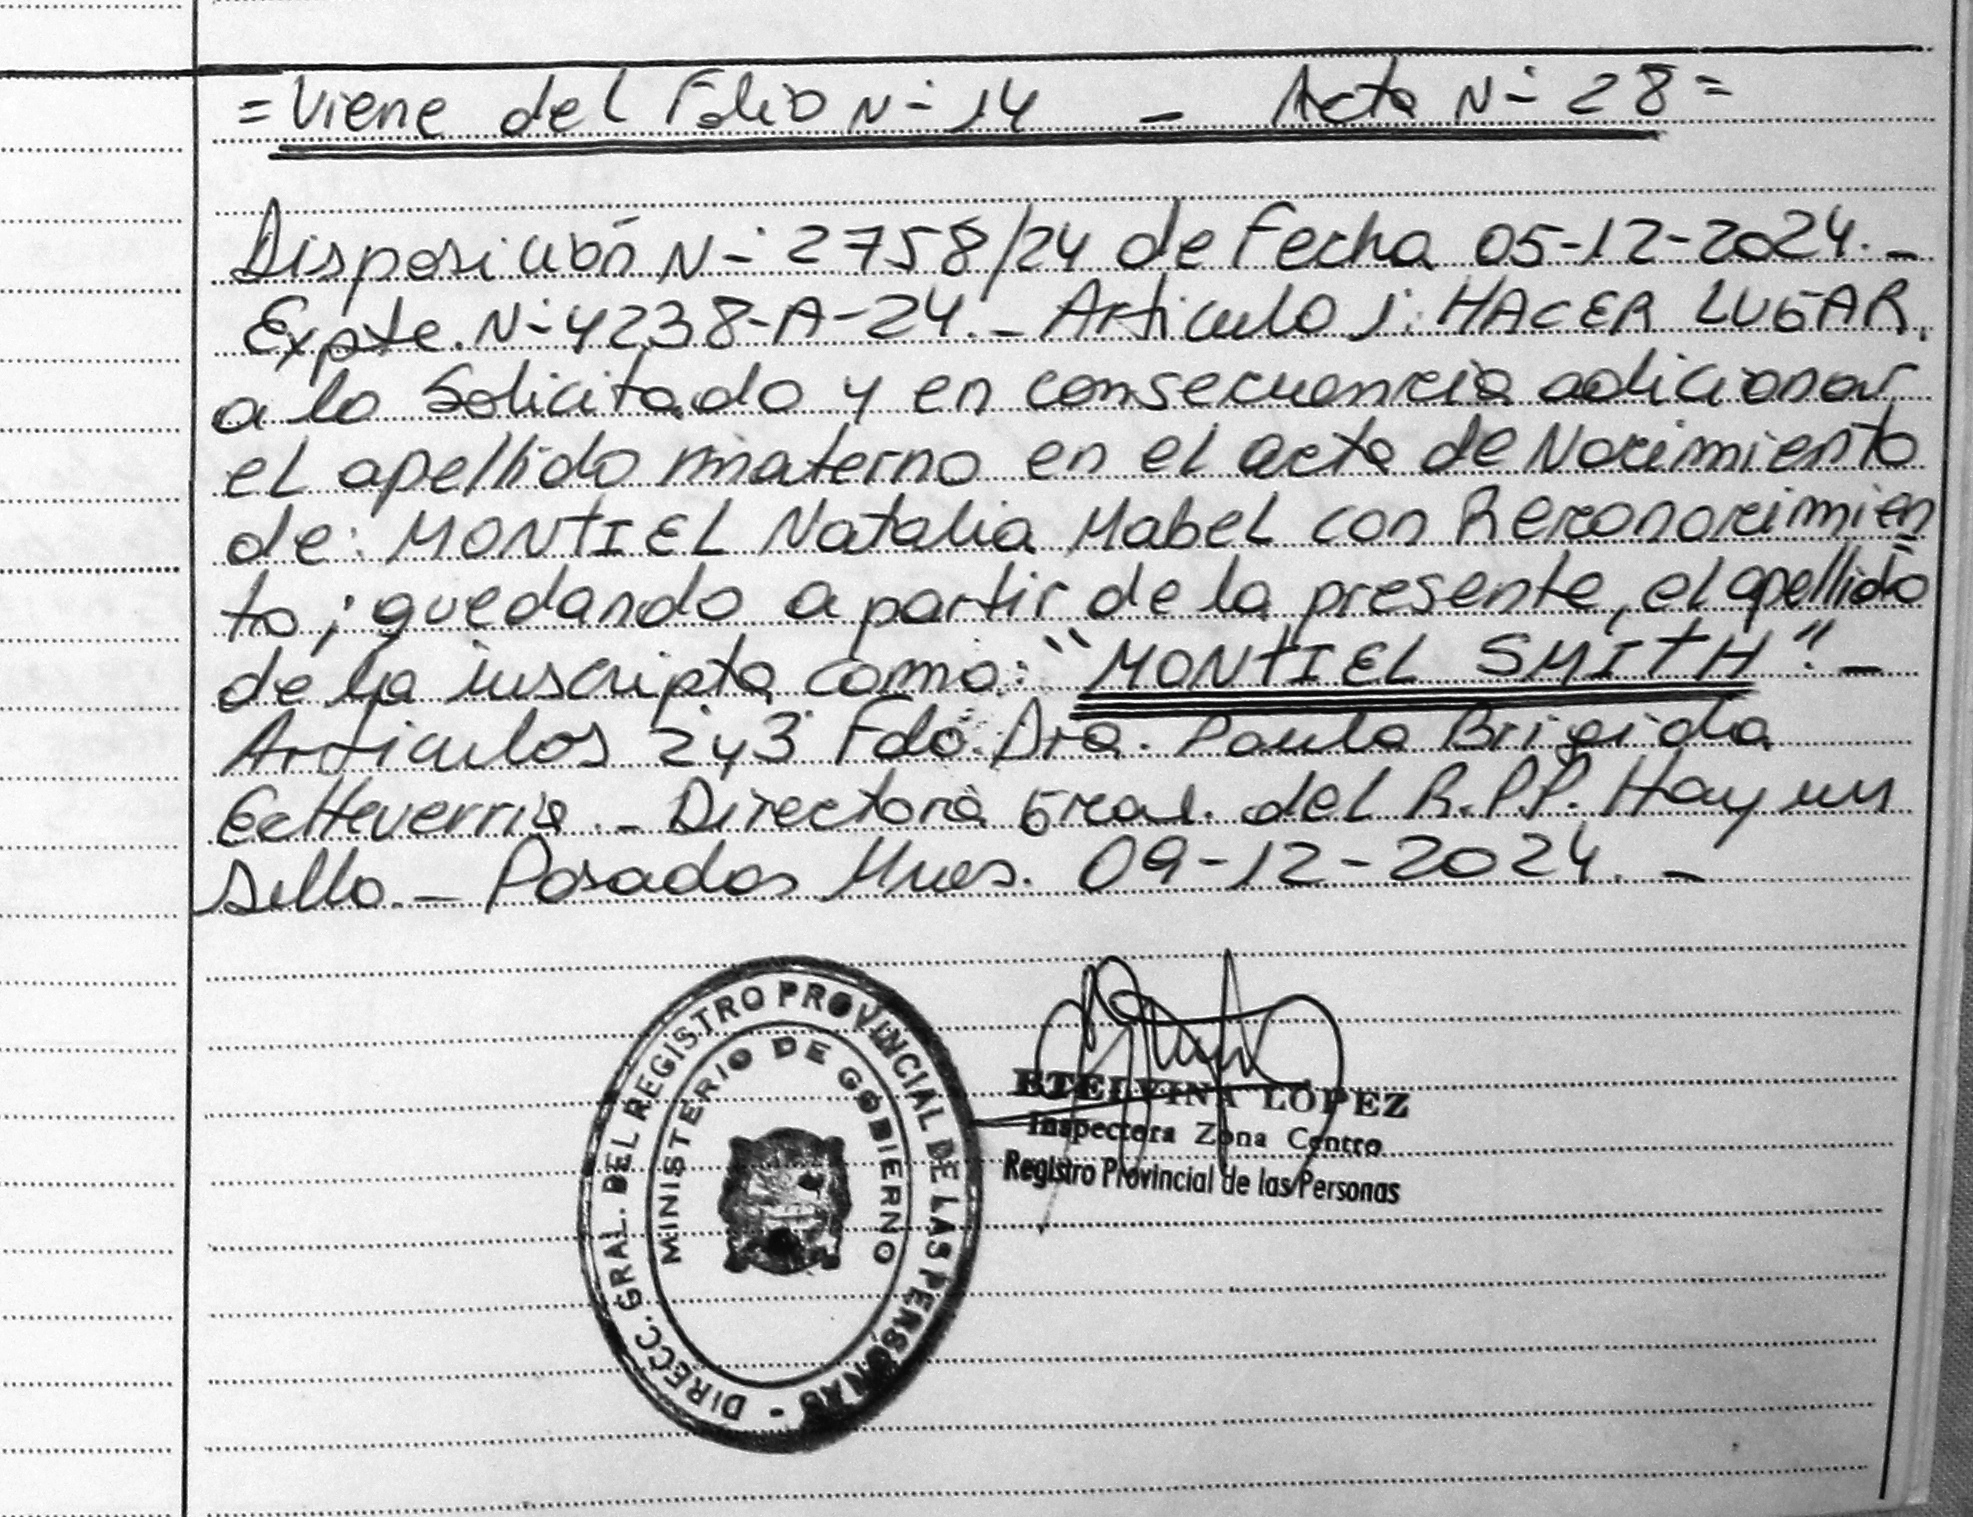 = Viene del Folio N- 14 - Acta N- 28 =
Disposición N- 2758/24 de Fecha 05-12-2024. -
Expte. N- 4238-A-24. - Articulo 1: HACER LUGAR
a lo Solicitado y en consecuencia adicionar
el apellido materno en el acta de Nacimiento
de: MONTIEL Natalia Mabel con Reconocimien
to; quedando a partir de la presente, el apellido
de la inscripta como: "MONTIEL SMITH". -
Articulos 2 y 3 Fdo. Dra. Paula Brigida
Echeverria. - Directora Gral. del R.P.P. Hay un
sello. - Posadas Mnes. 09-12-2024. -
DIRECC. GRAL. DEL REGISTRO PROVINCIAL DE LAS PERSONAS -
MINISTERIO DE GOBIERNO
ETELVINA LOPEZ
Inspectora Zona Centro
Registro Provincial de las Personas